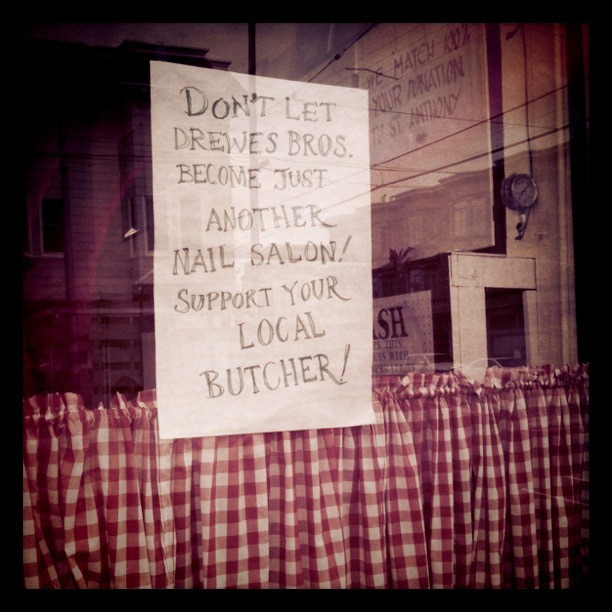 DON'T LET
DREWES BROS.
BECOME JUST
ANOTHER
NAIL SALON!
SUPPORT YOUR
LOCAL
BUTCHER!
WE MATCH 100%
YOUR DONATION
TO ST. ANTHONY